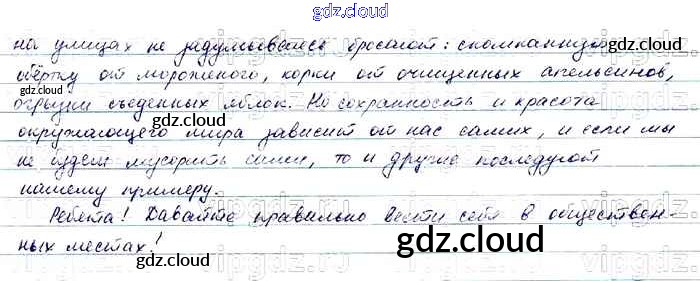 gdz.cloud
на улицах не задумываясь бросают: скомканную
обёртку от мороженого, корки от очищенных апельсинов,
огрызки съеденных яблок. Но сохранность и красота
окружающего мира зависит от нас самих, и если мы
не будем мусорить сами, то и другие последуют
нашему примеру.
Ребята! Давайте правильно вести себя в обществен-
ных местах!
gdz.cloud
gdz.cloud
gdz.cloud
gdz.cloud
gdz.cloud